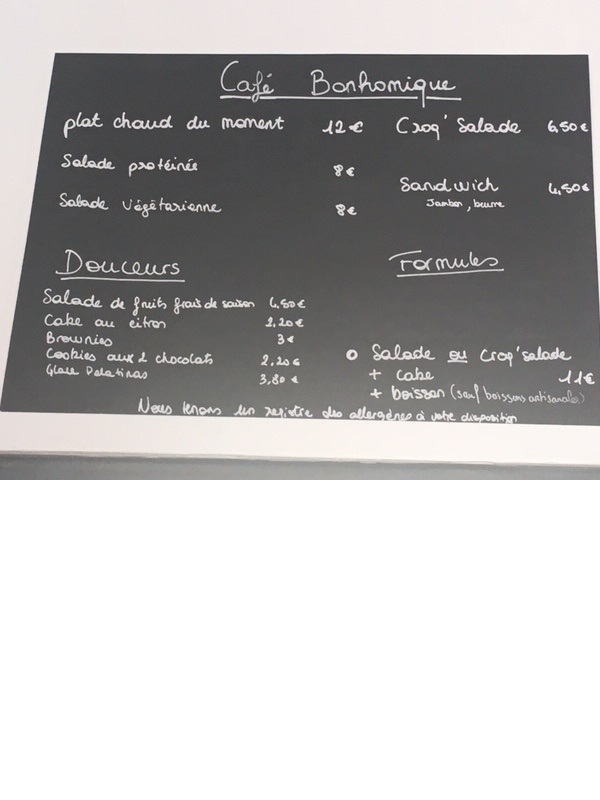 Café Bonhomique
plat chaud du moment 12€
Salade protéinée 8€
Salade végétarienne 8€
Croq' Salade 6,50€
Sandwich 4,50€
Jambon, beurre
Douceurs
Salade de fruits frais de saison 4,50€
Cake au citron 2,20€
Brownies 3€
Cookies aux 2 chocolats 2,20€
Glace 3,80€
Formules
o Salade ou Croq' salade
+ cake 11€
+ boisson (sauf boissons artisanales)
Nous tenons un registre des allergènes à votre disposition